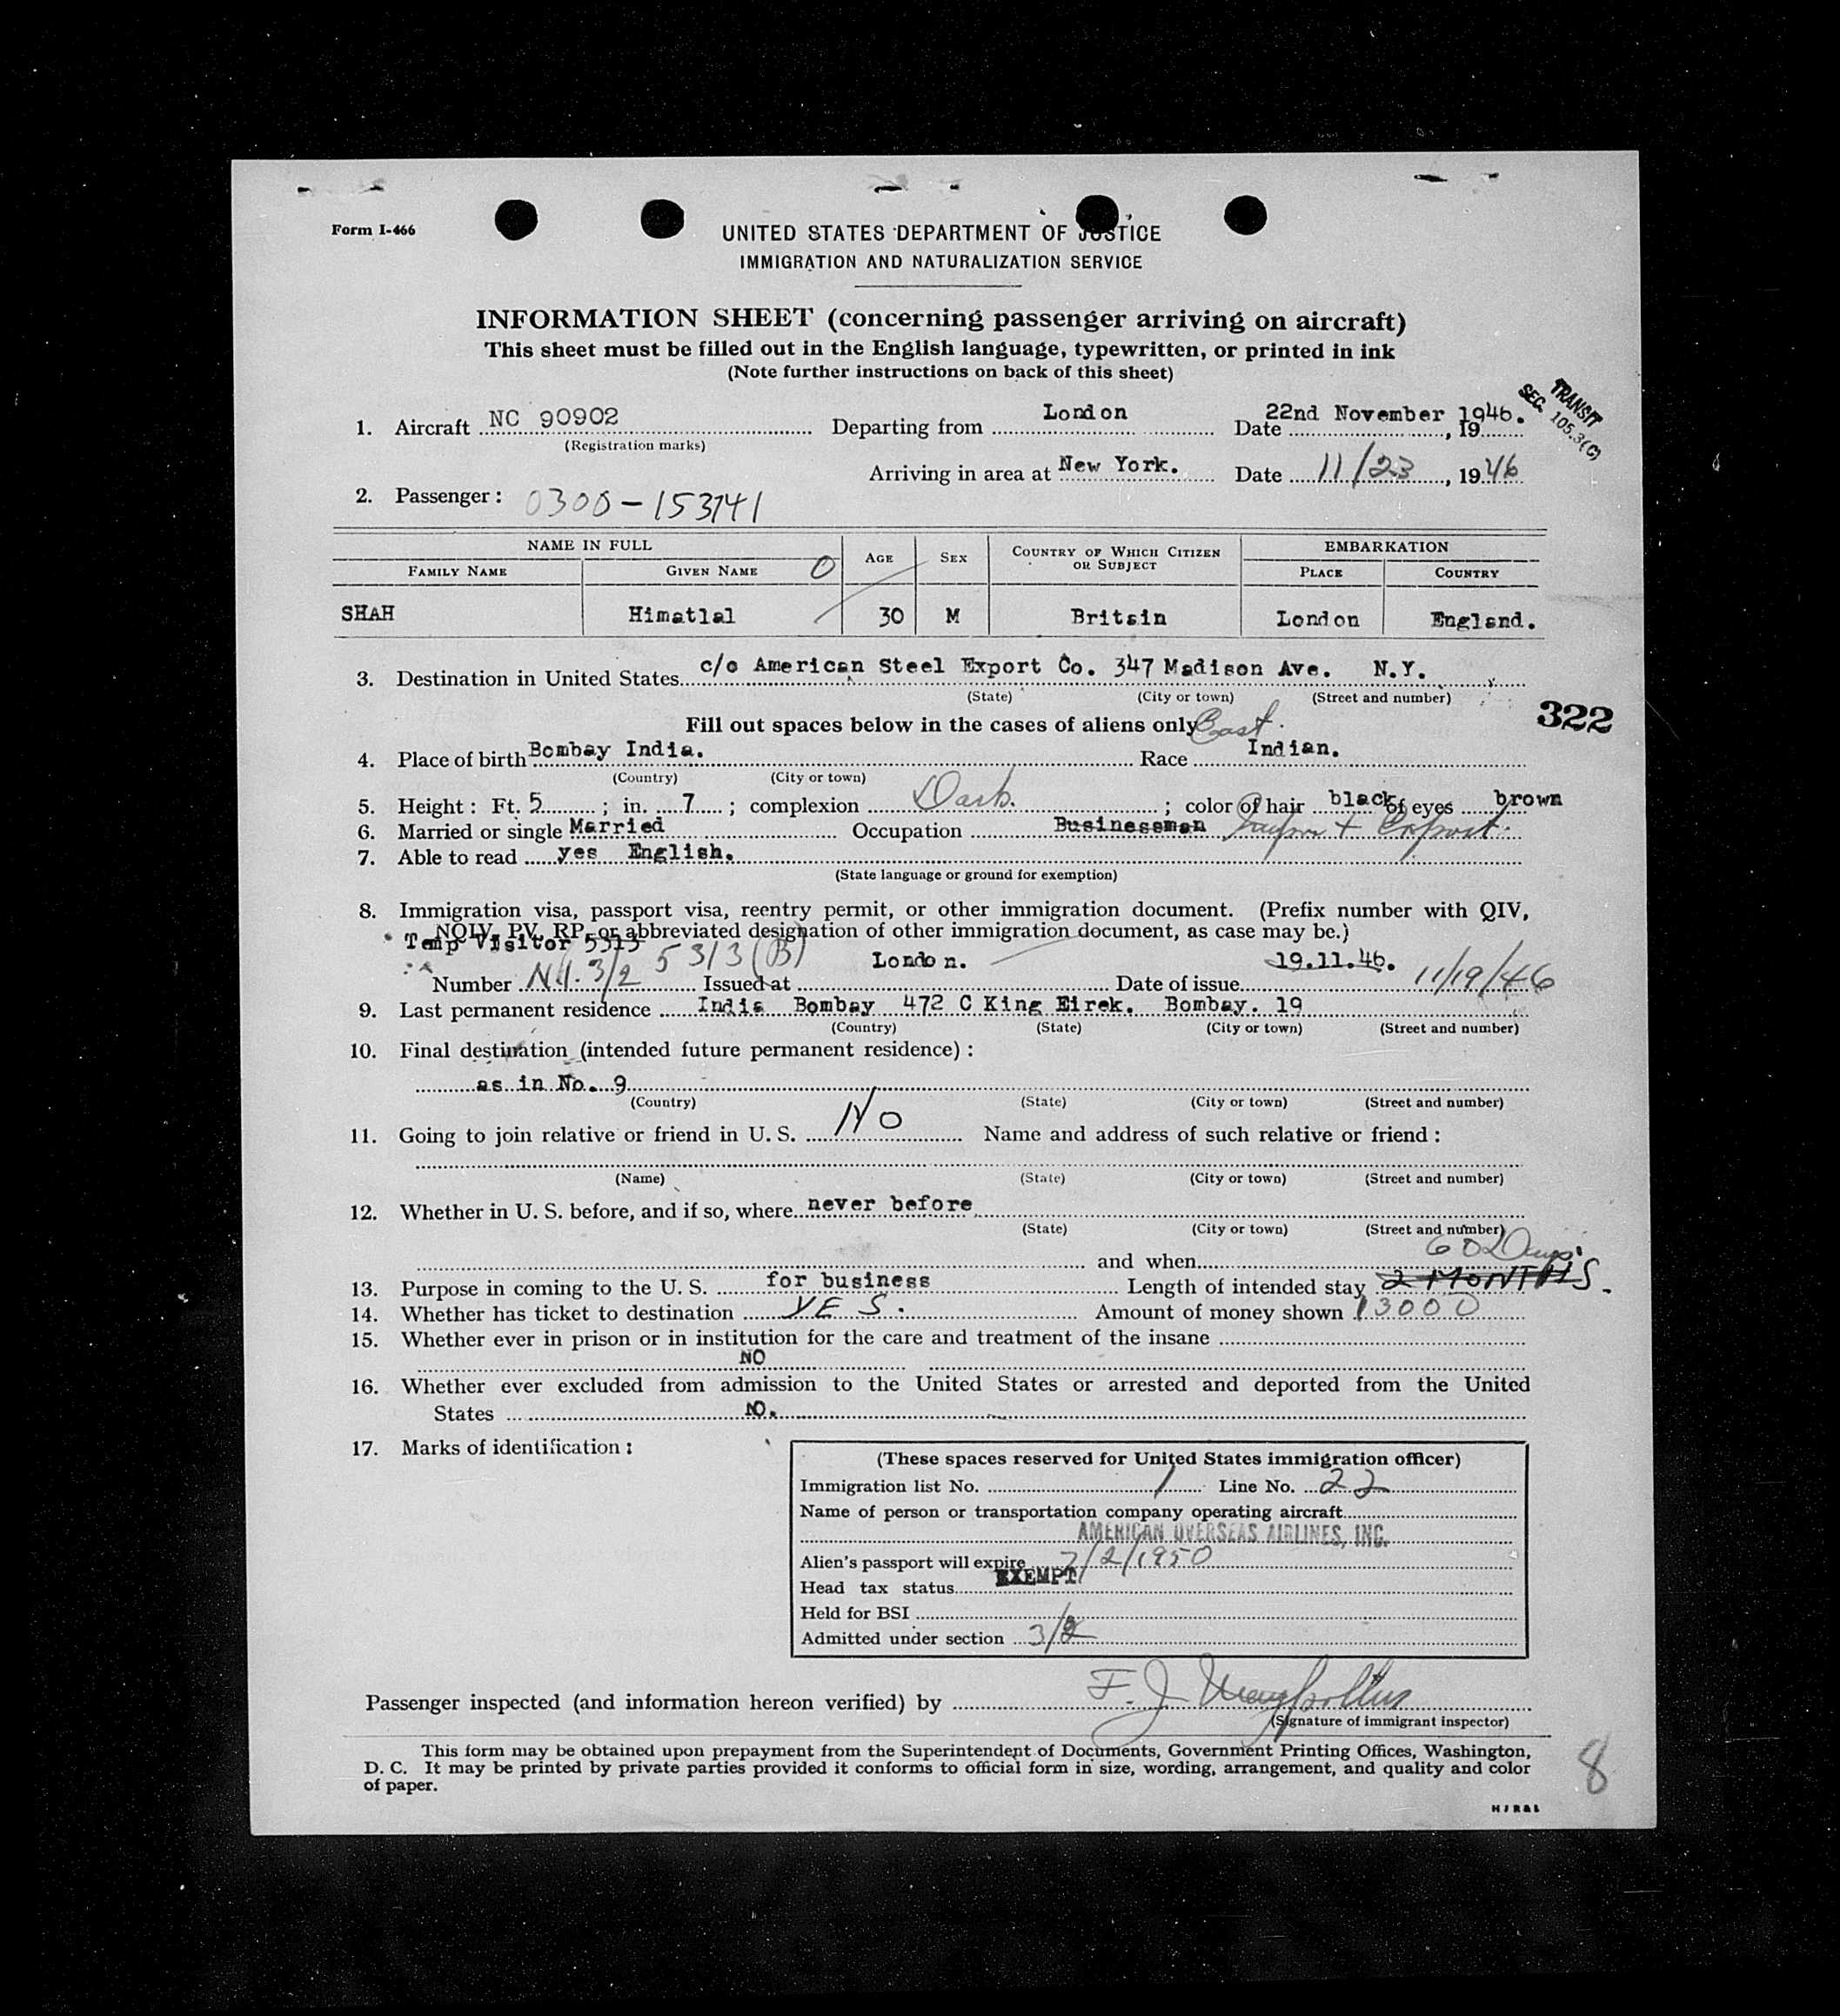 Form I-466
UNITED STATES DEPARTMENT OF JUSTICE
IMMIGRATION AND NATURALIZATION SERVICE
INFORMATION SHEET (concerning passenger arriving on aircraft)
This sheet must be filled out in the English language, typewritten, or printed in ink
(Note further instructions on back of this sheet)
TRANSIT
SEC. 105.3(C)
1. Aircraft NC 90902 Departing from London Date 22nd November 1946., 19
(Registration marks)
Arriving in area at New York. Date 11/23, 1946
2. Passenger: 0300-153741
NAME IN FULL AGE SEX COUNTRY OF WHICH CITIZEN OR SUBJECT EMBARKATION
FAMILY NAME GIVEN NAME 0 PLACE COUNTRY
SHAH Himatlal 30 M Britain London England.
3. Destination in United States c/o American Steel Export Co. 347 Madison Ave. N.Y.
(State) (City or town) (Street and number)
322
Fill out spaces below in the cases of aliens only East.
4. Place of birth Bombay India. Race Indian.
(Country) (City or town)
5. Height: Ft. 5; in. 7; complexion Dark.; color of hair black of eyes brown
6. Married or single Married Occupation Businessman + Export.
7. Able to read yes English.
(State language or ground for exemption)
8. Immigration visa, passport visa, reentry permit, or other immigration document. (Prefix number with QIV,
NQIV, PV, RP, or abbreviated designation of other immigration document, as case may be.)
Temp Visitor 5313
5313(B)
Number N.I. 3/2 Issued at London. Date of issue 19.11.46. 11/19/46
9. Last permanent residence India Bombay 472 C King Eirek. Bombay. 19
(Country) (State) (City or town) (Street and number)
10. Final destination (intended future permanent residence):
as in No. 9
(Country) (State) (City or town) (Street and number)
11. Going to join relative or friend in U. S. NO Name and address of such relative or friend:
(Name) (State) (City or town) (Street and number)
12. Whether in U. S. before, and if so, where never before
(State) (City or town) (Street and number)
and when
60 Days
13. Purpose in coming to the U. S. for business Length of intended stay 2 MONTHS.
14. Whether has ticket to destination YES. Amount of money shown 13000
15. Whether ever in prison or in institution for the care and treatment of the insane
NO
16. Whether ever excluded from admission to the United States or arrested and deported from the United
States NO.
17. Marks of identification:
(These spaces reserved for United States immigration officer)
Immigration list No. 1 Line No. 22
Name of person or transportation company operating aircraft
AMERICAN OVERSEAS AIRLINES, INC.
Alien's passport will expire 7/2/1950
Head tax status EXEMPT
Held for BSI
Admitted under section 3/2
Passenger inspected (and information hereon verified) by F. J.
(Signature of immigrant inspector)
This form may be obtained upon prepayment from the Superintendent of Documents, Government Printing Offices, Washington,
D. C. It may be printed by private parties provided it conforms to official form in size, wording, arrangement, and quality and color
of paper.
8